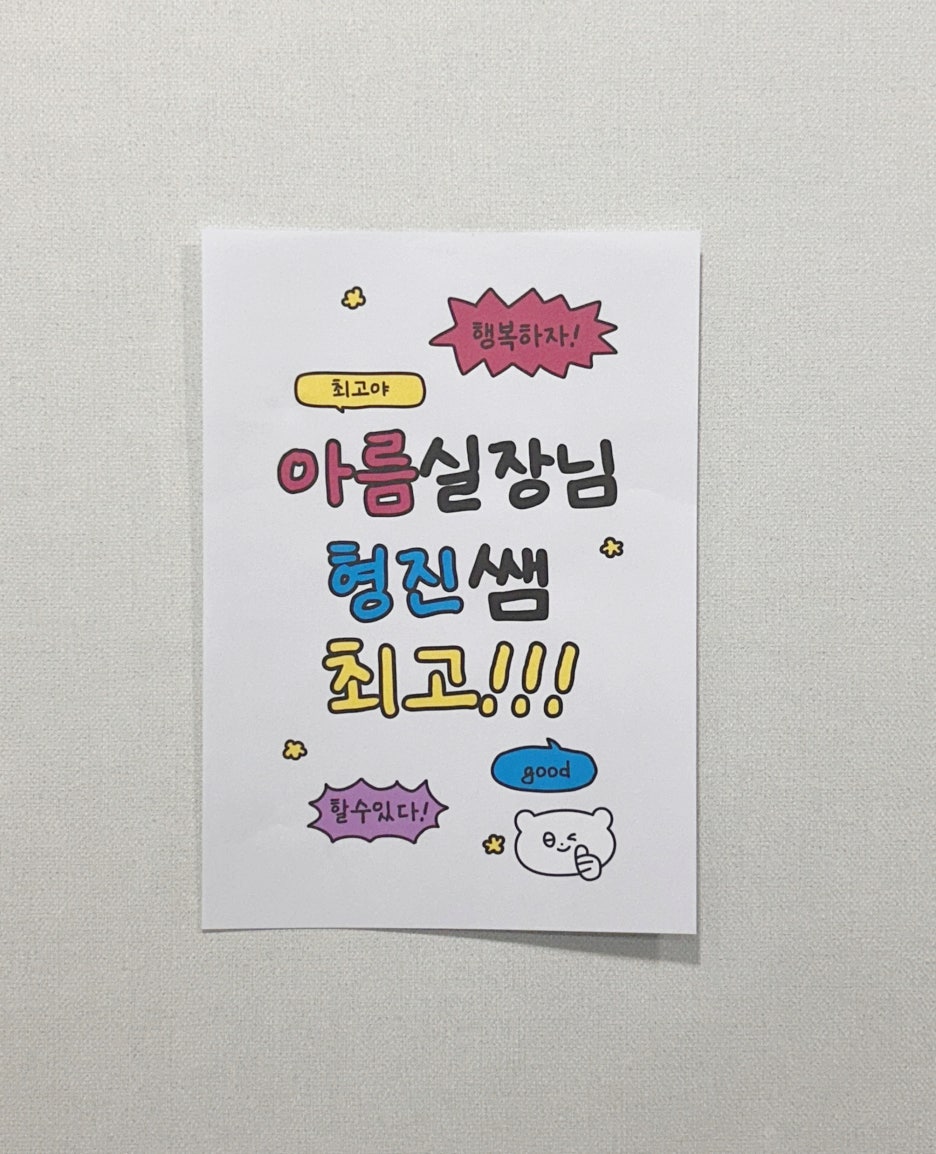 행복하자!
최고야
아름실장님
형진쌤
최고!!!
good
할수있다!